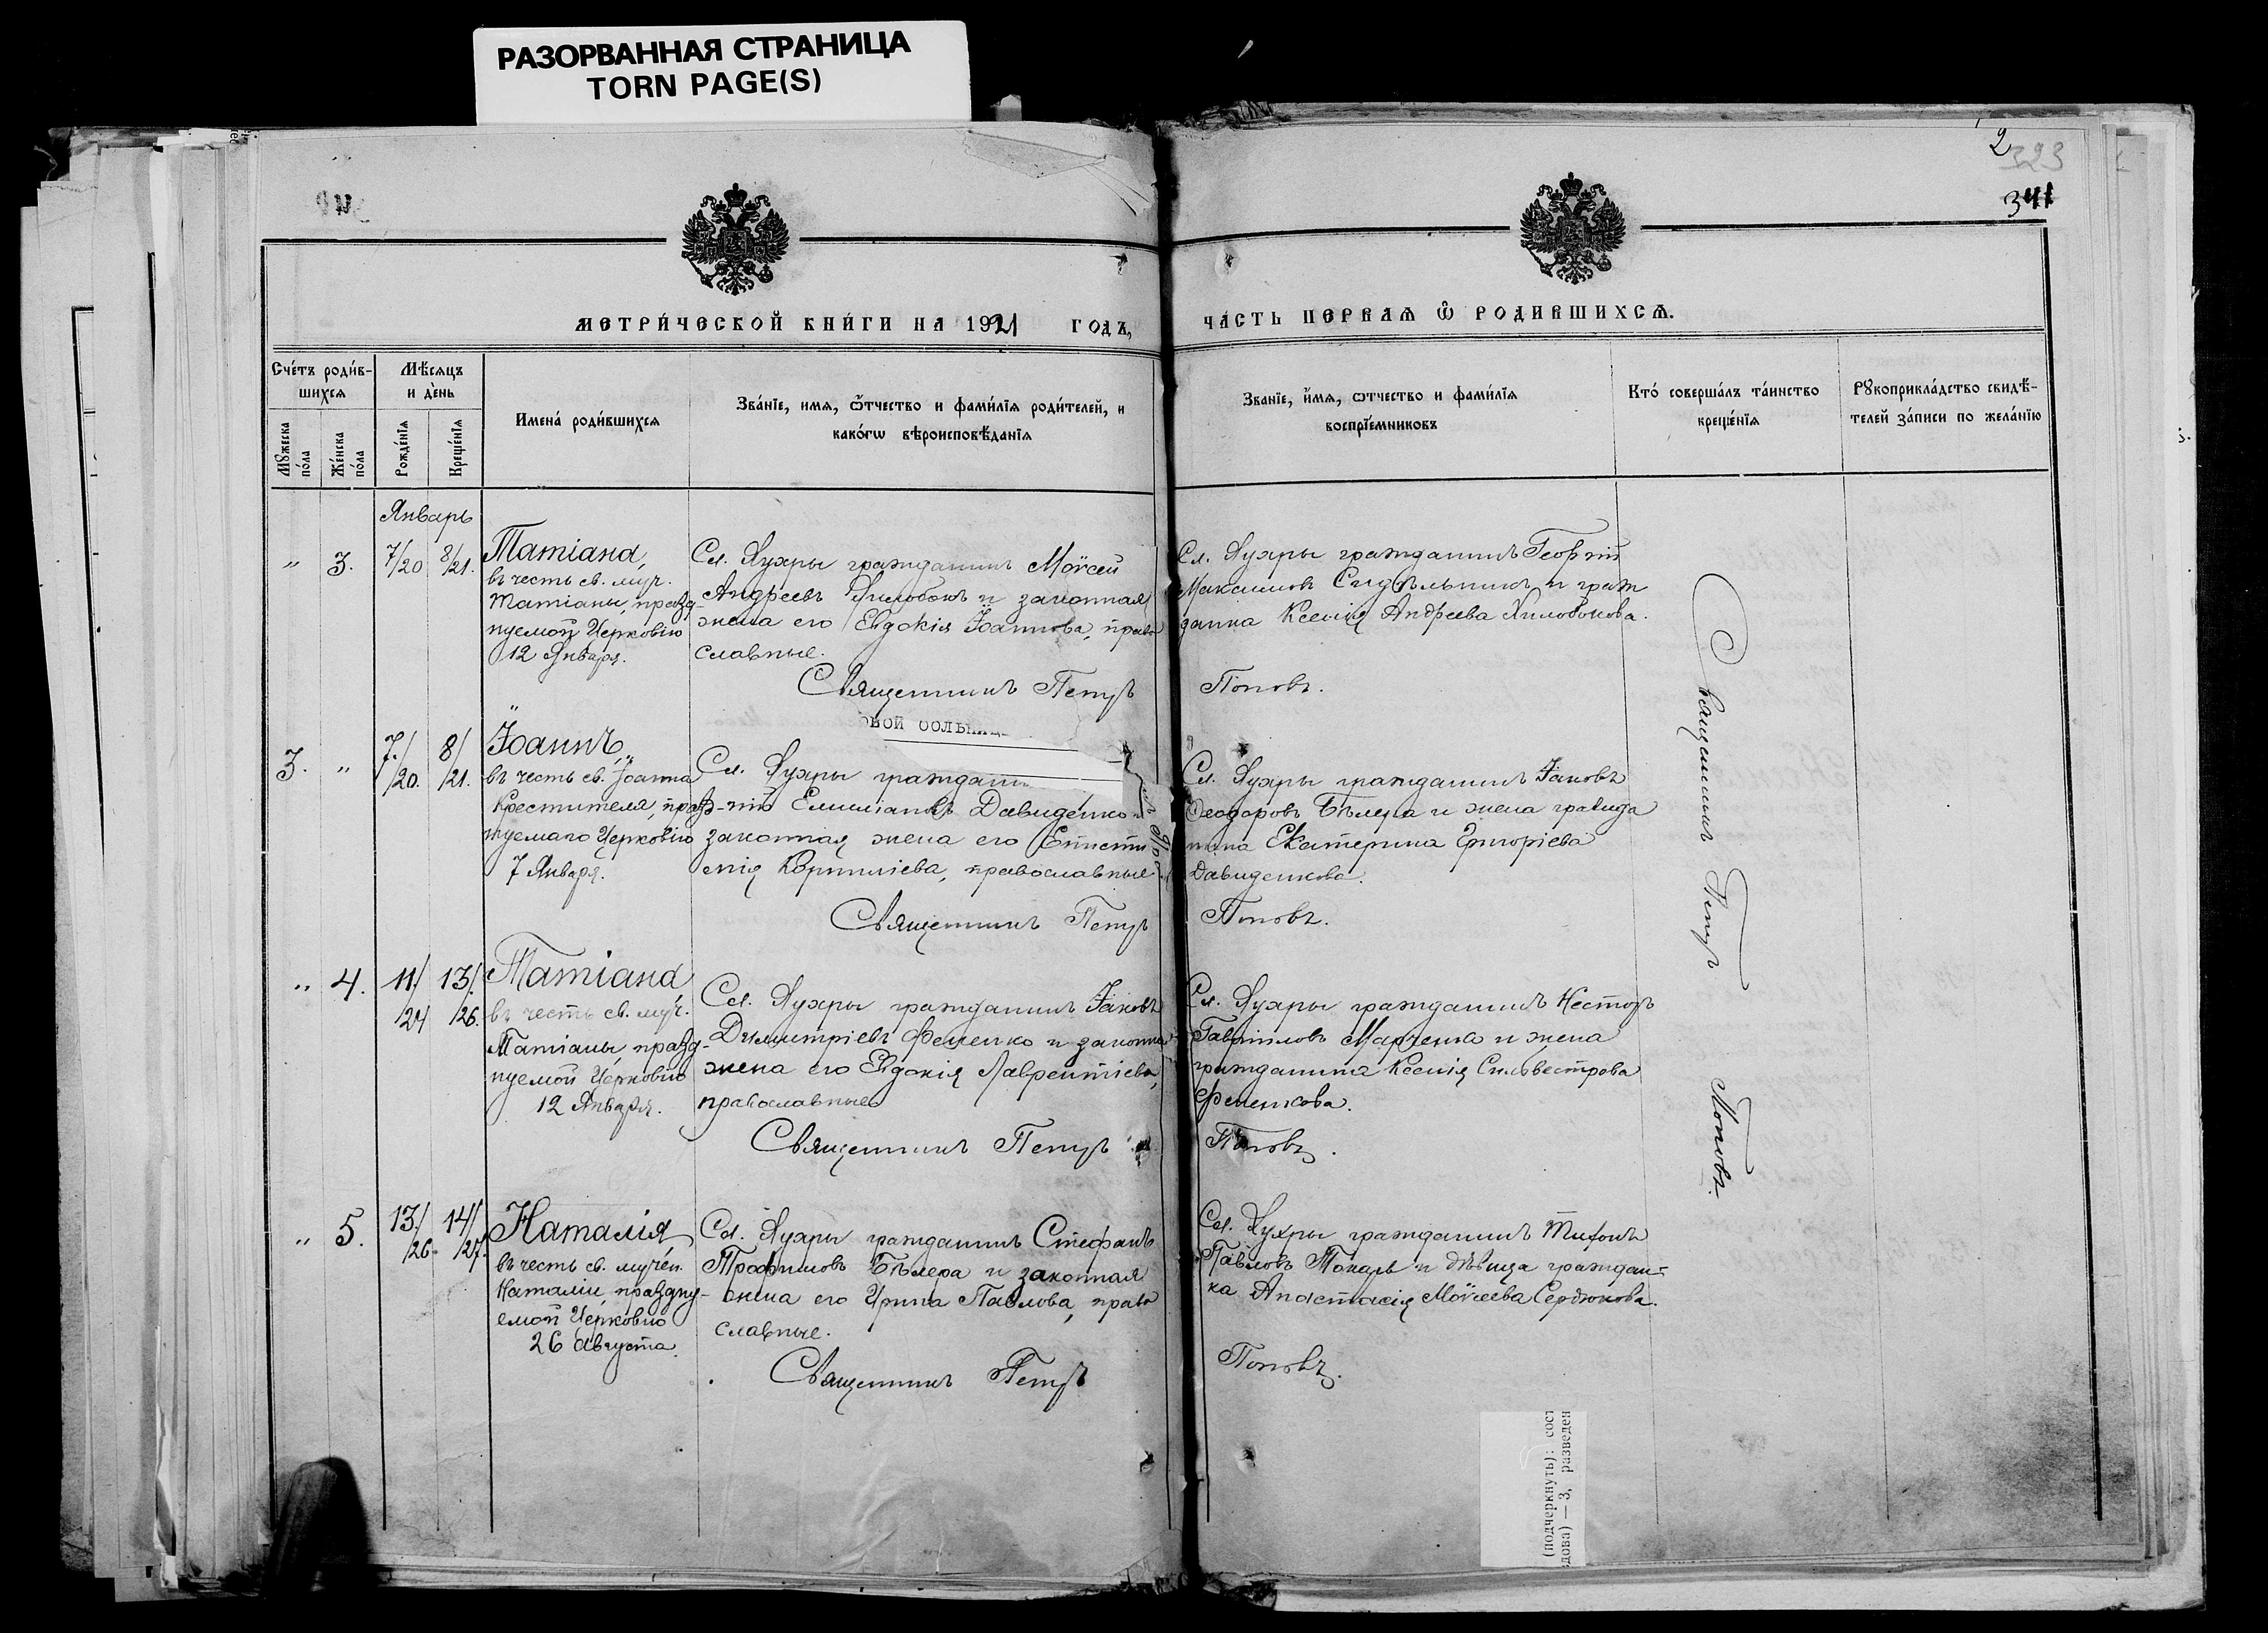 РАЗОРВАННАЯ СТРАНИЦА
TORN PAGE(S)
2
323
341
МЕТРИ́ЧЕСКОЙ КНИ́ГИ НА 1921 ГОДЪ,
ЧА́СТЬ ПЕРВАѦ Ѿ РОДИ́ВШИХСѦ.
Сче́тъ роди́в-
шихся
Мꙋжеска
по́ла
Же́нска
по́ла
Мѣ́сяцъ
и де́нь
Рожде́нїѧ
Креще́нїѧ
Имена̀ роди́вшихся
Зва́нїе, имѧ, ѻ҆́тчество и фами́лїѧ роди́телей, и
како́гѡ вѣроисповѣ́данїѧ
Зва́нїе, и҆́мѧ, ѻтчество и фами́лїѧ
воспрїе́мниковъ
Кто́ соверша́лъ та́инство
креще́нїѧ
Рꙋкоприкла́дство свидѣ́-
телей за́писи по жела́нїю
Январь
" 3. 7/20 8/21.
Татіана,
въ честь св. муч.
Татіаны, празд-
нуемой Церковію
12 Января.
Сл. Яухры гражданинъ Моѵсей
Андреевъ Хилобокъ и законная
жена его Евдокія Іоаннова, право
славные.
Священникъ Петръ
Сл. Яухры гражданинъ Георгій
Максимовъ Сидѣльникъ и граж
данка Ксенія Андреева Хилобокова.
Поповъ.
вой больниц
3. " 7./20. 8/21.
Іоаннъ,
въ честь св. Іоанна
Крестителя, празд-
нуемаго Церковію
7 Января.
Сл. Яухры граждани
Емиліановъ Давиденко и
законная жена его Еписти
мія Корниліева, православные
Священникъ Петръ
Сл. Яухры гражданинъ Іаковъ
Ѳеодоровъ Бѣлера и жена гражда
нина Екатерина Григоріева
Давиденкова.
Поповъ.
" 4. 11/24 13/26.
Татіана
въ честь св. муч.
Татіаны, празд-
нуемой Церковію
12 Января.
Сл. Яухры гражданинъ Іаковъ
Димитріевъ Фененко и законная
жена его Евдокія Лаврентіева,
православные
Священникъ Петръ
Сл. Яухры гражданинъ Несторъ
Гавріиловъ Марченко и жена
гражданина Ксенія Сильвестрова
Фененкова.
Поповъ.
" 5. 13/26. 14/27.
Наталія
въ честь св. мучен.
Наталіи, праздну-
емой Церковію
26 Августа.
Сл. Яухры гражданинъ Стефанъ
Трофимовъ Бѣлера и законная
жена его Ирина Павлова, право
славные.
Священникъ Петръ
Сл. Яухры гражданинъ Тихонъ
Павловъ Токарь и дѣвица граждан-
ка Анастасія Моѵсеева Сердюкова.
Поповъ.
Священникъ Петръ Поповъ.
(подчеркнуть): сост
здова) — 3, разведен